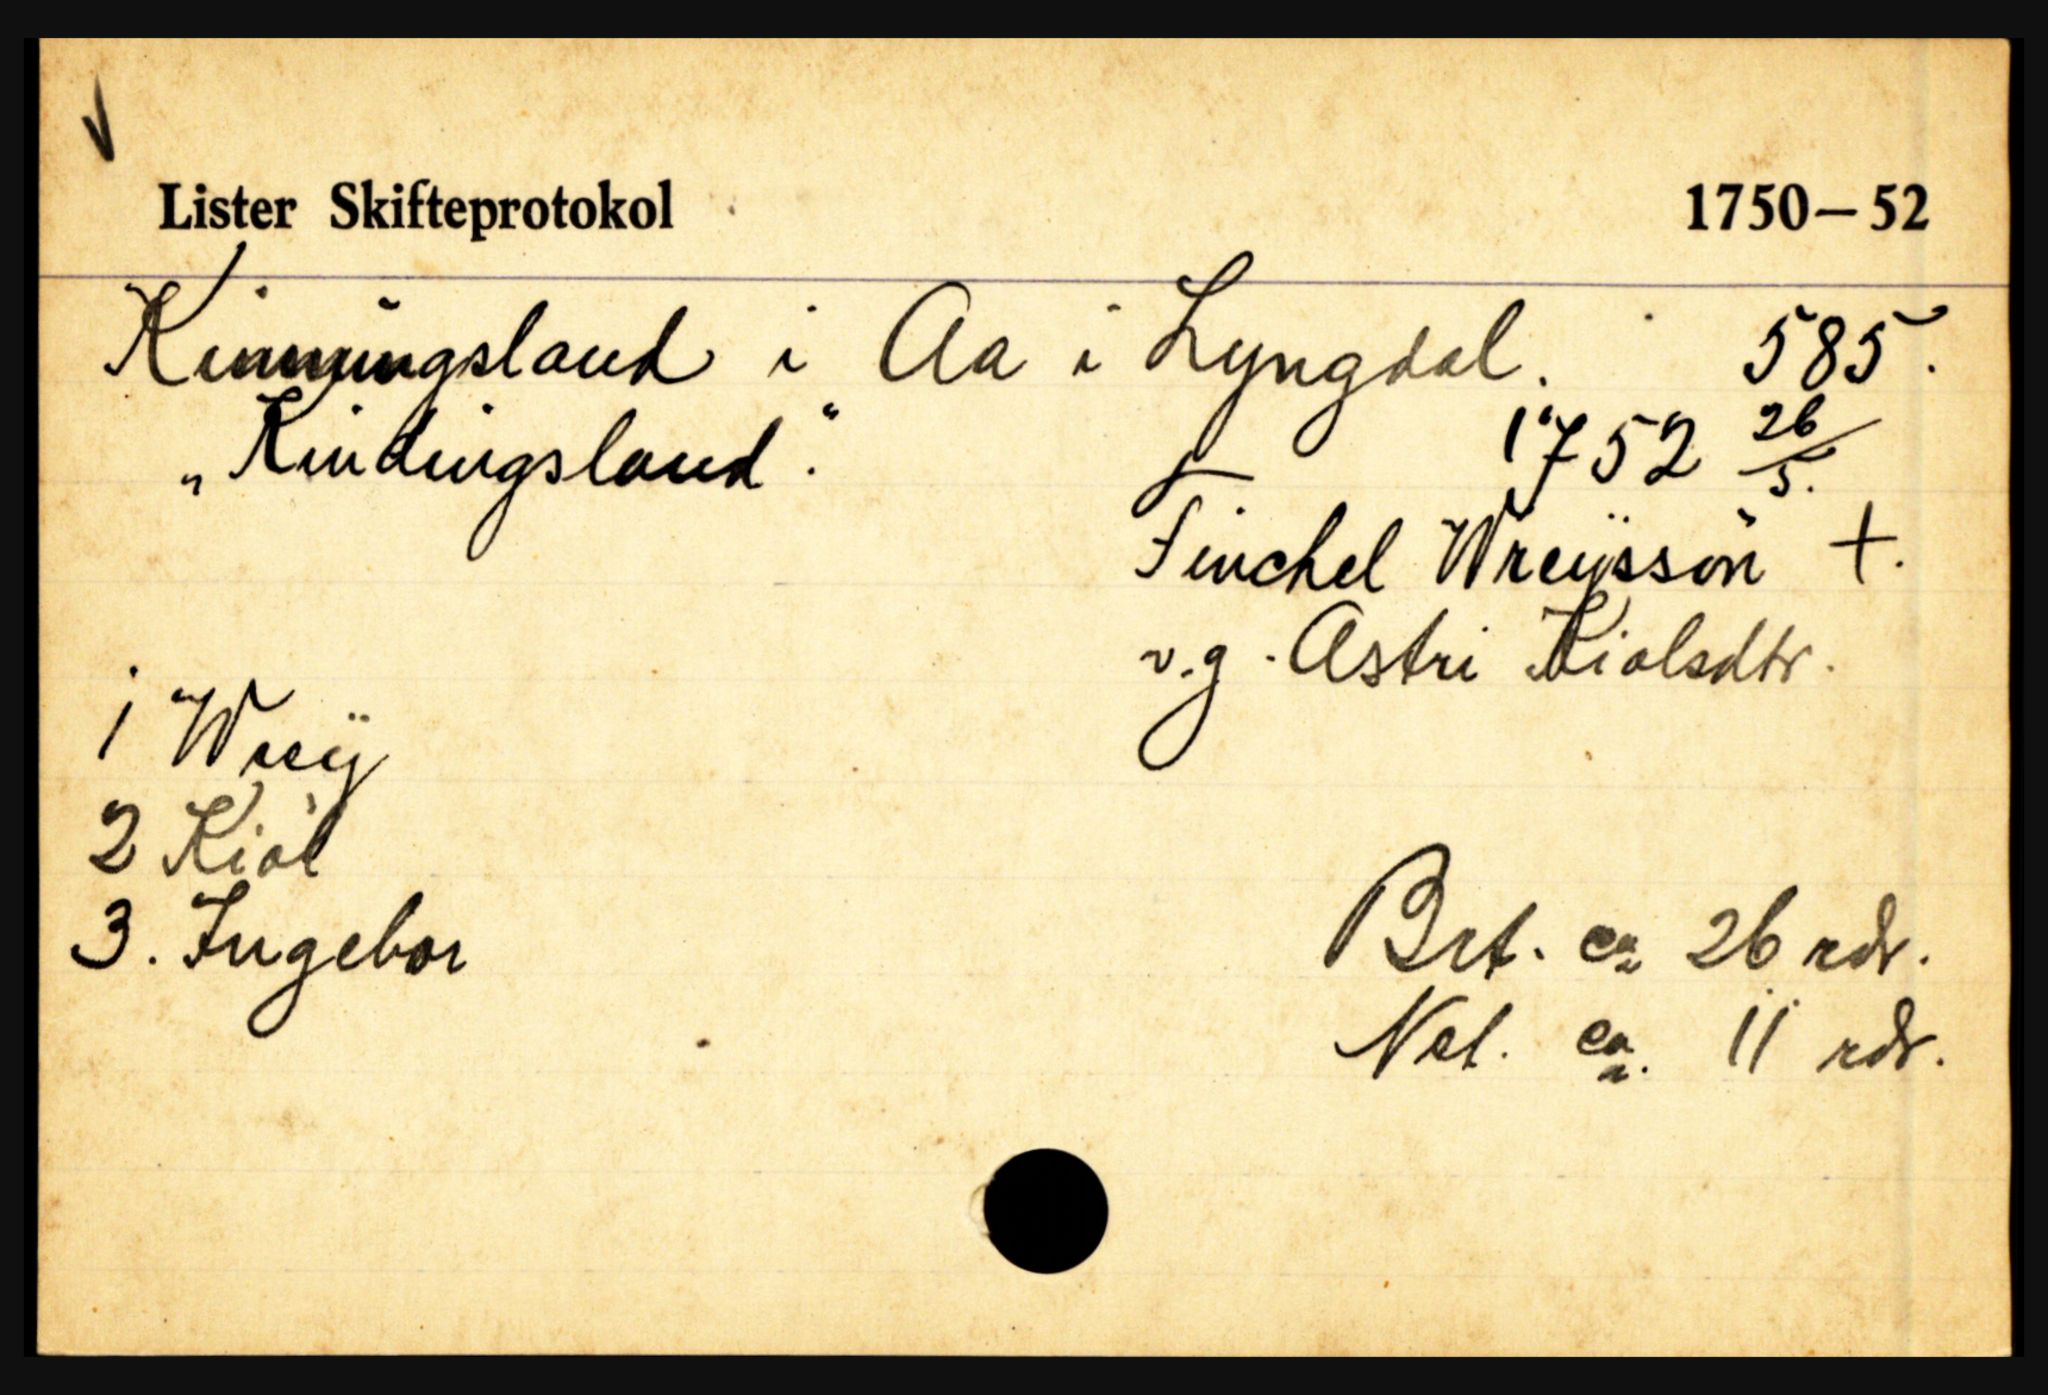 Lister Skifteprotokol 1750–52
Kinningsland i Aa i Lyngdal. 585.
„Kindingsland". 1752 26/5.
Finchel Wreÿssön +.
v.g. Astri Kiolsdtr.
1 Wreÿ
2 Kiöl
3. Ingebor
Brt. ca 26 rdr.
Net. ca. 11 rdr.